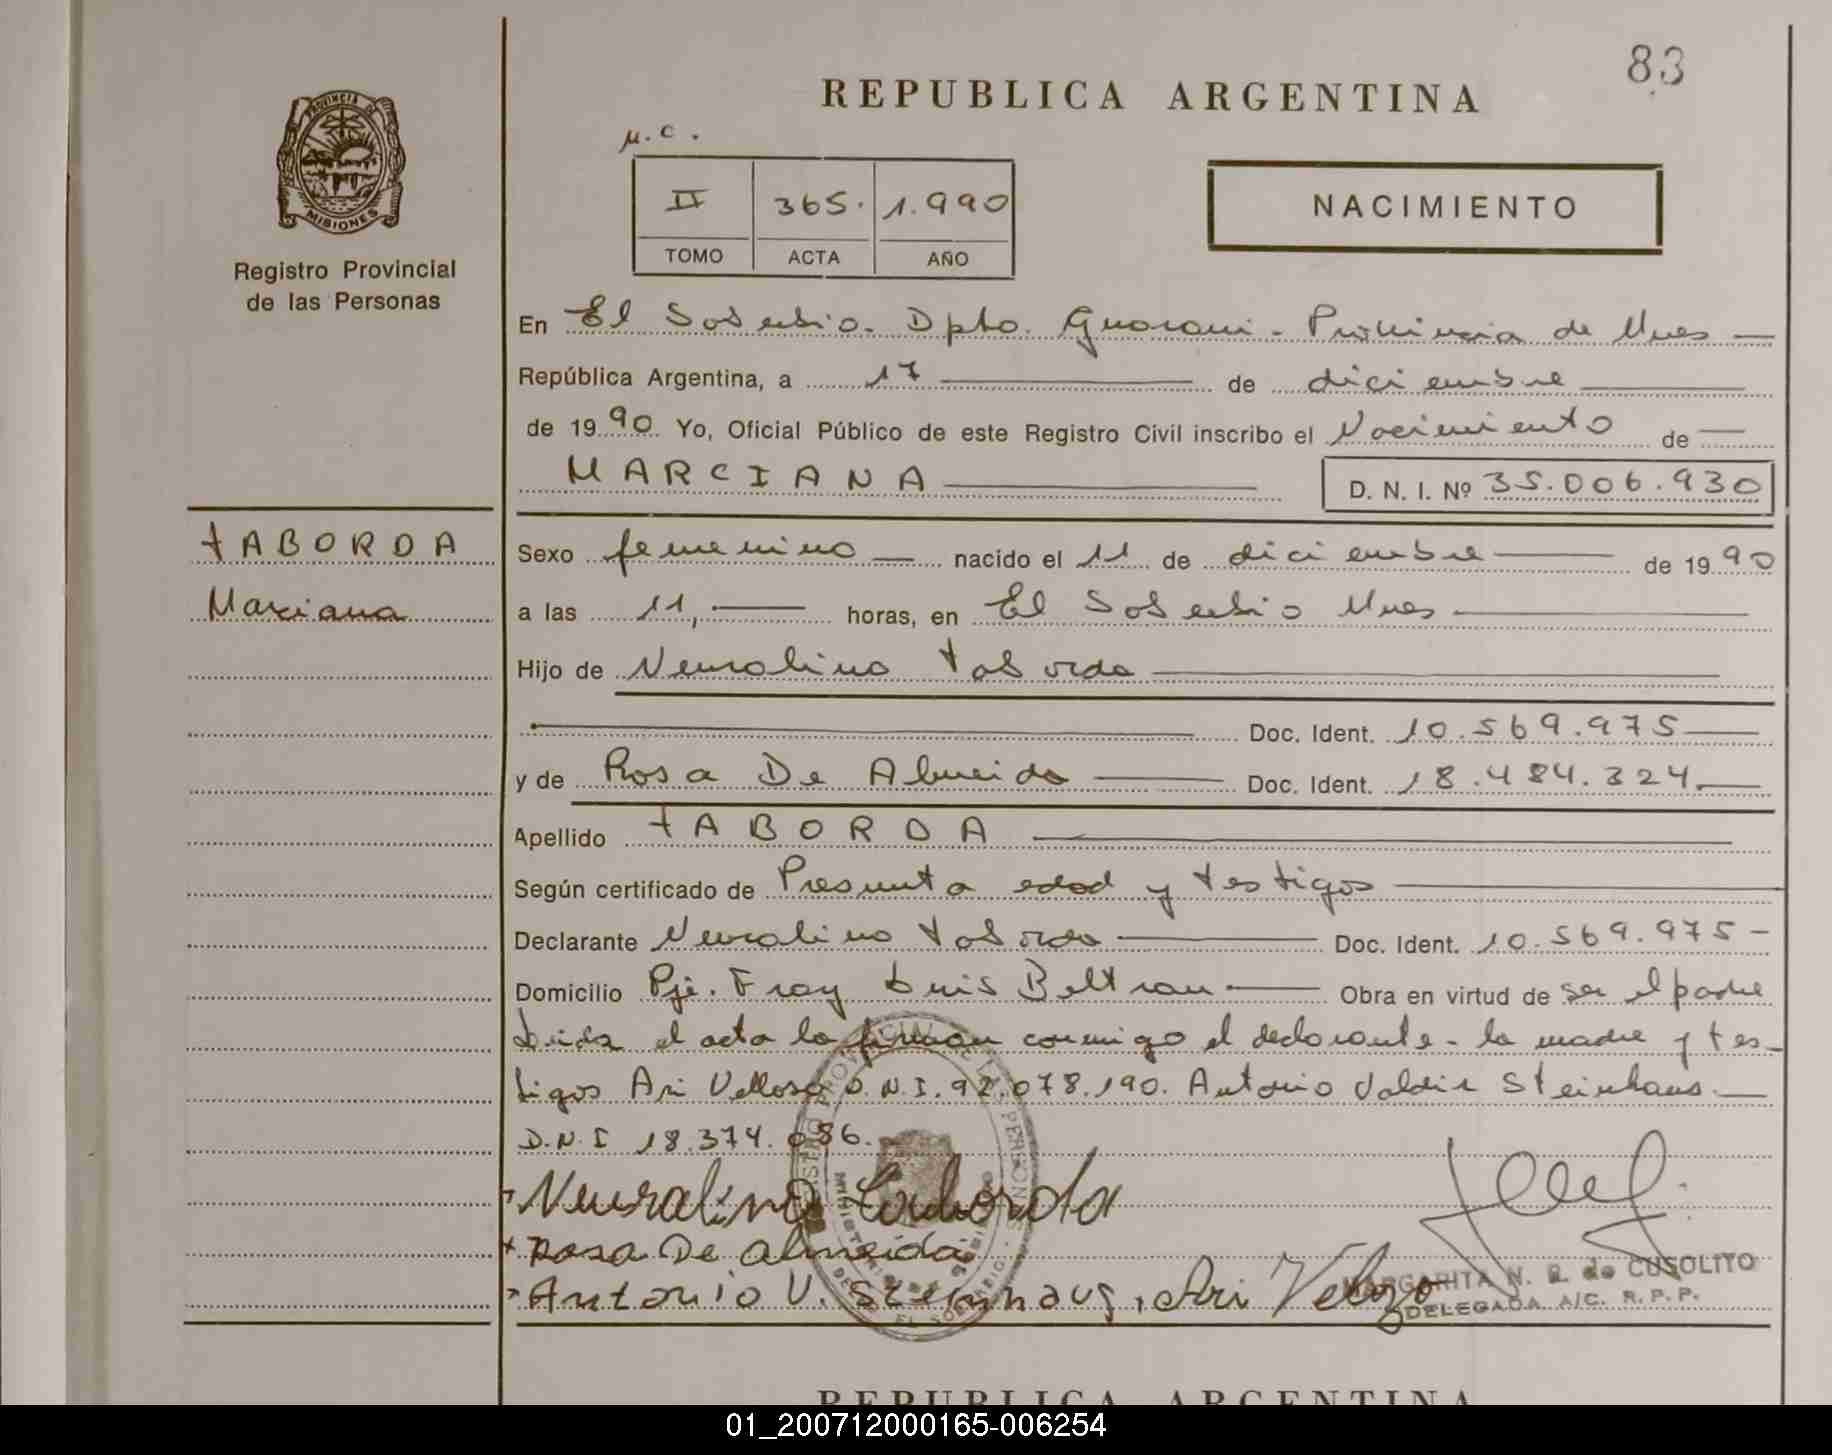 83
REPUBLICA ARGENTINA
M.C.
PROVINCIA DE
MISIONES
Registro Provincial
de las Personas
II 365. 1.990
TOMO ACTA AÑO
NACIMIENTO
En El Soberbio. Dpto. Guarani - Provincia de Mnes
República Argentina, a 17 de diciembre
de 1990 Yo, Oficial Público de este Registro Civil inscribo el Nacimiento de
MARCIANA D. N. I. Nº 35.006.930
TABORDA
Marciana
Sexo femenino nacido el 11 de diciembre de 1990
a las 11, horas, en El Soberbio Mnes
Hijo de Neuralino Taborda
Doc. Ident. 10.569.975
y de Rosa De Almeida Doc. Ident. 18.484.324
Apellido TABORDA
Según certificado de Presunta edad y testigos
Declarante Neuralino Taborda Doc. Ident. 10.569.975 -
Domicilio Pje. Fray Luis Beltran Obra en virtud de ser el padre
Leida el acta la firman conmigo el declarante - la madre y tes-
tigos Ari Velloso D.N.I. 92.078.190. Antonio Valdir Steinhaus.
D.N.I 18.374.086.
Neuralino Taborda
Rosa De almeida
Antonio V. Steinhaus, Ari Velozo
MARGARITA N. R. de CUSOLITO
DELEGADA A/C. R.P.P.
REPUBLICA ARGENTINA
01_200712000165-006254